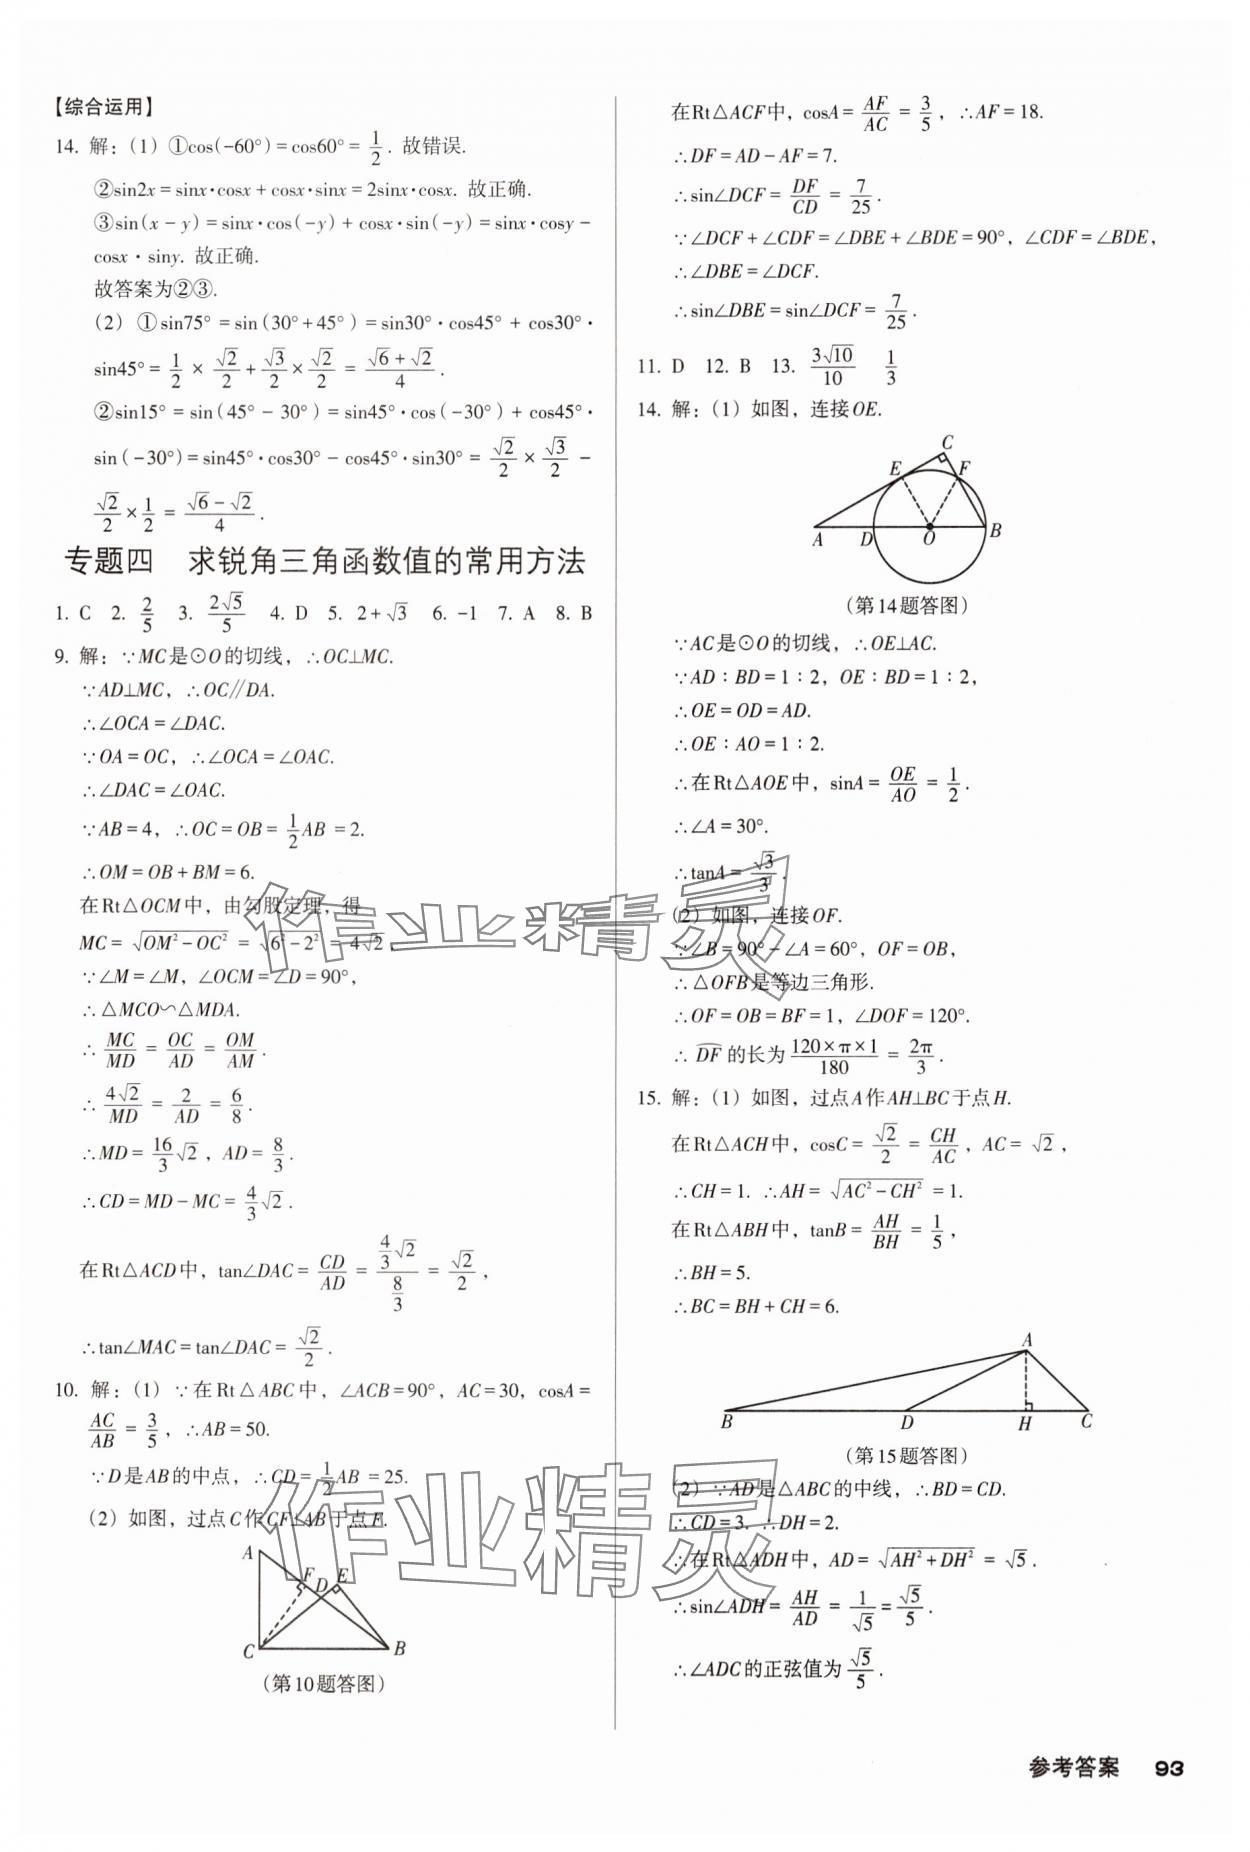 【综合运用】
14. 解：(1) ①cos(-60°) = cos60° = 1/2 . 故错误.
②sin2x = sinx·cosx + cosx·sinx = 2sinx·cosx. 故正确.
③sin(x - y) = sinx·cos(-y) + cosx·sin(-y) = sinx·cosy -
cosx·siny. 故正确.
故答案为②③.
(2) ①sin75° = sin(30° + 45°) = sin30°·cos45° + cos30°·
sin45° = 1/2 × √2/2 + √3/2 × √2/2 = (√6 + √2)/4 .
②sin15° = sin(45° - 30°) = sin45°·cos(-30°) + cos45°·
sin(-30°) = sin45°·cos30° - cos45°·sin30° = √2/2 × √3/2 -
√2/2 × 1/2 = (√6 - √2)/4 .
专题四 求锐角三角函数值的常用方法
1. C 2. 2/5 3. 2√5/5 4. D 5. 2 + √3 6. -1 7. A 8. B
9. 解：∵MC是⊙O的切线，∴OC⊥MC.
∵AD⊥MC，∴OC∥DA.
∴∠OCA = ∠DAC.
∵OA = OC，∴∠OCA = ∠OAC.
∴∠DAC = ∠OAC.
∵AB = 4，∴OC = OB = 1/2 AB = 2.
∴OM = OB + BM = 6.
在Rt△OCM中，由勾股定理，得
MC = √(OM² - OC²) = √(6² - 2²) = 4√2 .
∵∠M = ∠M，∠OCM = ∠D = 90°，
∴△MCO∽△MDA.
∴ MC/MD = OC/AD = OM/AM .
∴ 4√2/MD = 2/AD = 6/8 .
∴MD = 16/3 √2 ，AD = 8/3 .
∴CD = MD - MC = 4/3 √2 .
在Rt△ACD中，tan∠DAC = CD/AD = (4/3 √2)/(8/3) = √2/2 ，
∴tan∠MAC = tan∠DAC = √2/2 .
10. 解：(1) ∵在Rt△ABC中，∠ACB = 90°，AC = 30，cosA =
AC/AB = 3/5 ，∴AB = 50.
∵D是AB的中点，∴CD = 1/2 AB = 25.
(2) 如图，过点C作CF⊥AB于点F.
A
F
D
E
C
B
(第10题答图)
在Rt△ACF中，cosA = AF/AC = 3/5 ，∴AF = 18.
∴DF = AD - AF = 7.
∴sin∠DCF = DF/CD = 7/25 .
∵∠DCF + ∠CDF = ∠DBE + ∠BDE = 90°，∠CDF = ∠BDE，
∴∠DBE = ∠DCF.
∴sin∠DBE = sin∠DCF = 7/25 .
11. D 12. B 13. 3√10/10 1/3
14. 解：(1) 如图，连接OE.
C
E
F
A
D
O
B
(第14题答图)
∵AC是⊙O的切线，∴OE⊥AC.
∵AD∶BD = 1∶2，OE∶BD = 1∶2，
∴OE = OD = AD.
∴OE∶AO = 1∶2.
∴在Rt△AOE中，sinA = OE/AO = 1/2 .
∴∠A = 30°.
∴tanA = √3/3 .
(2) 如图，连接OF.
∵∠B = 90° - ∠A = 60°，OF = OB，
∴△OFB是等边三角形.
∴OF = OB = BF = 1，∠DOF = 120°.
∴ D͡F 的长为 (120×π×1)/180 = 2π/3 .
15. 解：(1) 如图，过点A作AH⊥BC于点H.
在Rt△ACH中，cosC = √2/2 = CH/AC ，AC = √2 ，
∴CH = 1. ∴AH = √(AC² - CH²) = 1.
在Rt△ABH中，tanB = AH/BH = 1/5 ，
∴BH = 5.
∴BC = BH + CH = 6.
A
B
D
H
C
(第15题答图)
(2) ∵AD是△ABC的中线，∴BD = CD.
∴CD = 3. ∴DH = 2.
∴在Rt△ADH中，AD = √(AH² + DH²) = √5 .
∴sin∠ADH = AH/AD = 1/√5 = √5/5 .
∴∠ADC的正弦值为 √5/5 .
作业精灵
作业精灵
参考答案 93